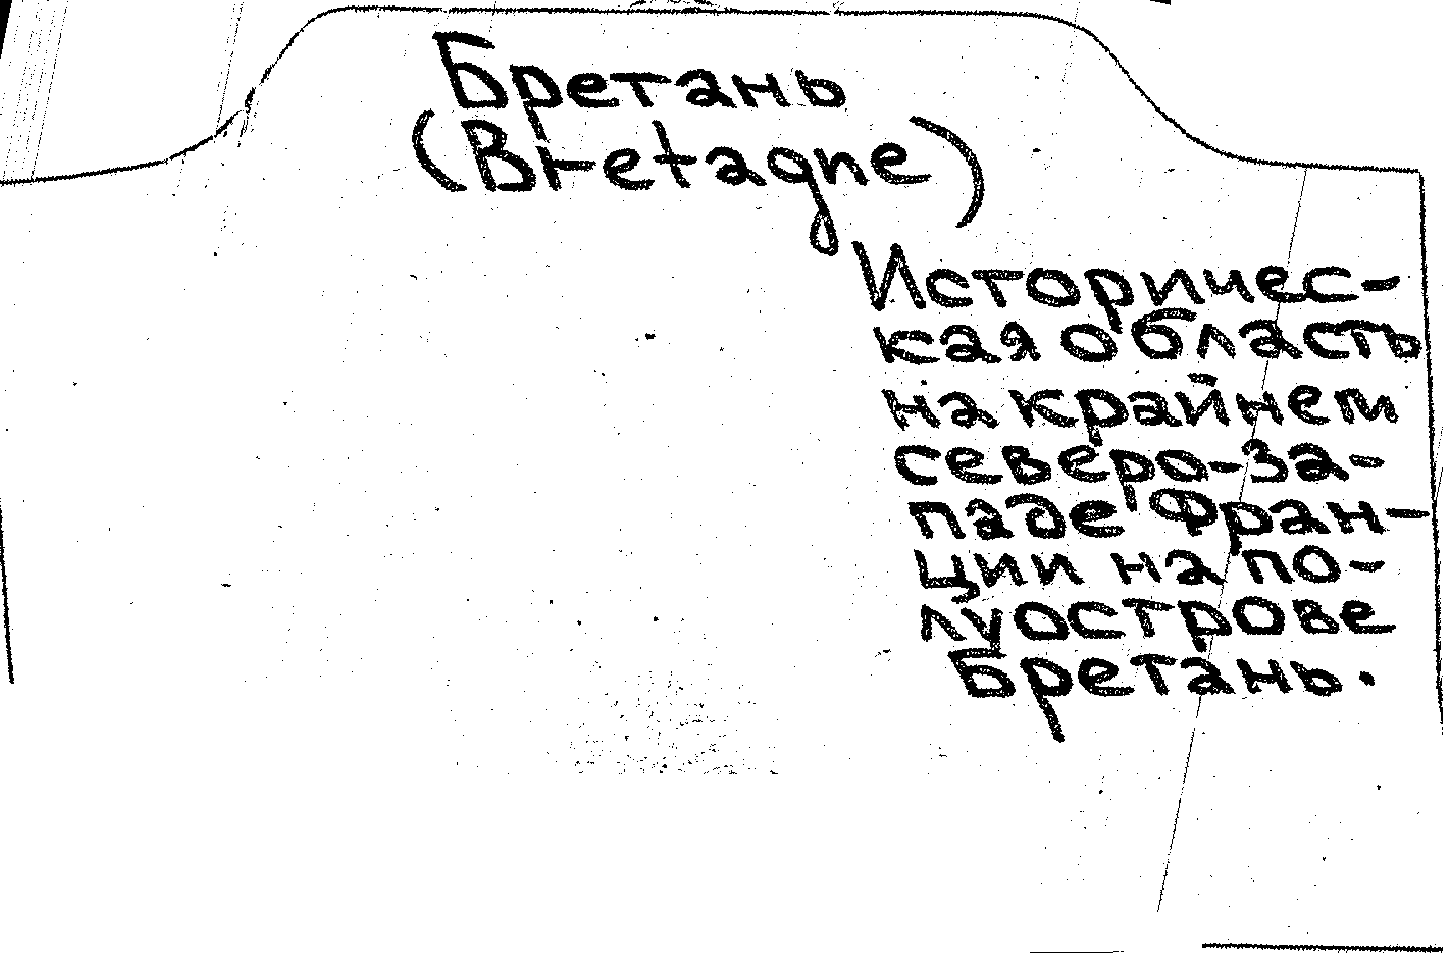 Бретань
(Bretagne)
Историчес-
кая область
на крайнем
северо-за-
паде Фран-
ции на по-
луострове
Бретань.